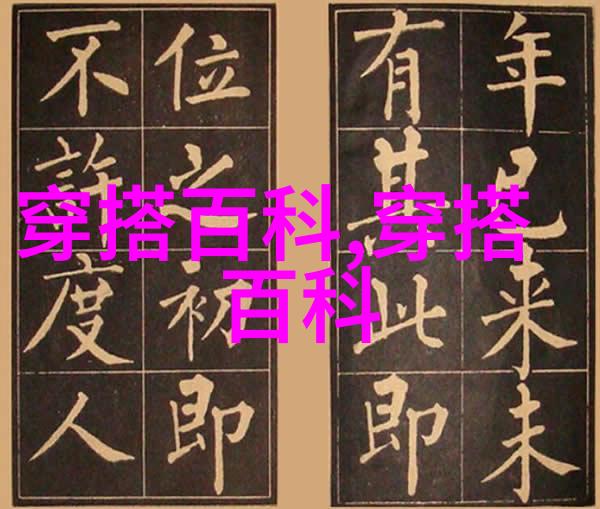 年已来未
有其此即
位之初即
不許度人
穿搭百科,穿搭
百科